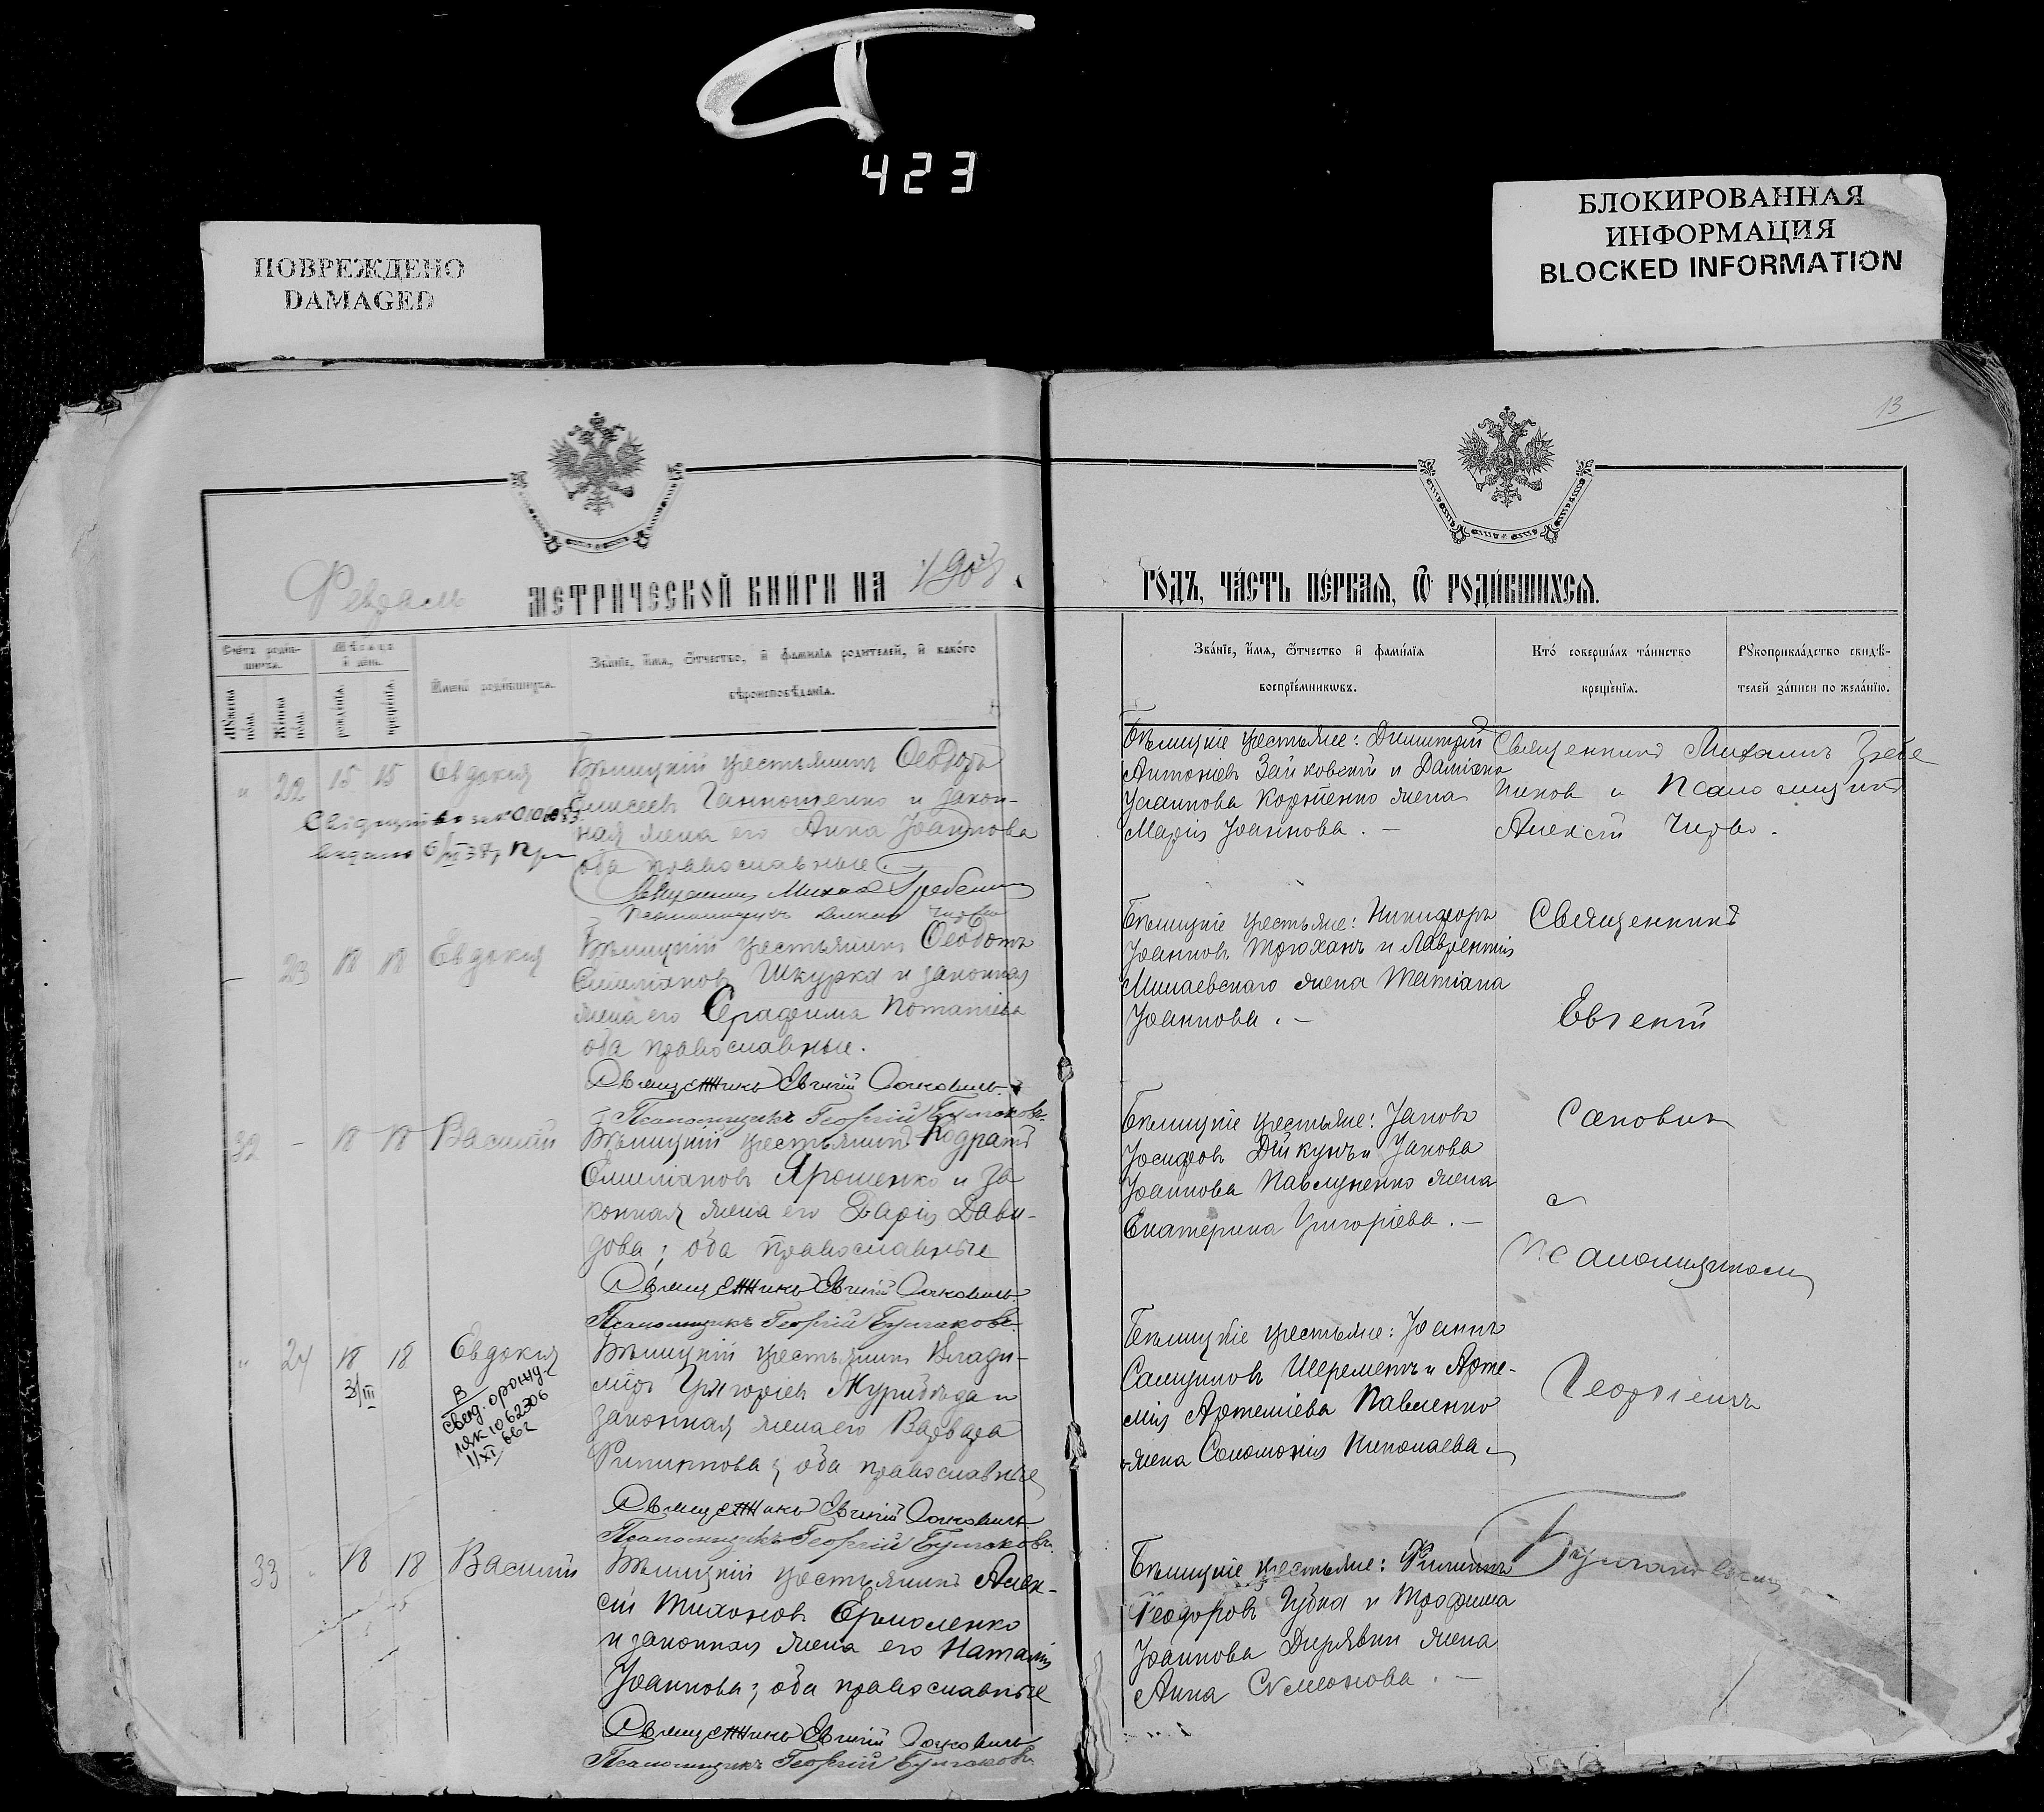 423
ПОВРЕЖДЕНО
DAMAGED
БЛОКИРОВАННАЯ
ИНФОРМАЦИЯ
BLOCKED INFORMATION
13
Февраль МЕТРИЧЕСКОЙ КНИГИ НА
ГОДЪ, ЧАСТЬ ПЕРВАЯ, Ѡ РОДИВШИХСЯ.
Счетъ родив-
шихся.
Мѣсяцъ
и день.
Мужеска
пола.
Женска
пола.
рожденія.
крещенія.
Имена родившихся.
Званіе, имя, ѿчество, и фамилія родителей, и какого
вѣроисповѣданія.
Званіе, имя, ѿчество и фамилія
воспріемниковъ.
Кто совершалъ таинство
крещенія.
Рукоприкладство свидѣ-
телей записи по желанію.
" 22 15 15 Евдокия
крестьянинъ Ѳеодоръ
Елисеевъ и закон-
ная жена его Анна Іоаннова
оба православные
Священникъ Михаилъ
крестьяне: Димитрій
Антоніевъ Зайковскій и Даміана
Іоаннова Корніенко жена
Марія Іоаннова. –
Священникъ Михаилъ Гребе
никовъ и Псаломщикъ
Алексѣй
– 23 18 18 Евдокія
крестьянинъ Ѳеодотъ
Емиліановъ Шкурка и законная
жена его Серафима Потапіева
оба православные.
Священникъ Евгеній
Псаломщикъ Георгій Булгаковъ
крестьяне: Никифоръ
Іоанновъ Трюханъ и Лаврентія
Минаевскаго жена Татіана
Іоаннова. –
Священникъ
Евгеній
32 – 18 18 Василій
крестьянинъ Кодратъ
Емиліановъ Ярошенко и за
конная жена его Дарія Дави-
дова; оба православные
Священникъ Евгеній
Псаломщикъ Георгій Булгаковъ.
крестьяне: Іаковъ
Іосифовъ Дикунъ и Іакова
Іоаннова Павлученко жена
Екатерина Григоріева. –
с
Псаломщикомъ
" 24 18 18 Евдокия
31/III
В
свид. о рожд.
1ЯК 1062306
1/XI 66г
крестьянинъ Влади-
міръ Григоріевъ Журибѣда и
законная жена его Варвара
Филиппова; оба православные
Священникъ Евгеній
Псаломщикъ Георгій Булгаковъ.
крестьяне: Іоаннъ
Самуиловъ Шереметъ и Арте-
мія Артеміева Павленко
жена Соломонія Николаева.
Георгіемъ
33 18 18 Василій
крестьянинъ Алек-
сій Тихоновъ Ермоленко
и законная жена его Наталія
Іоаннова; оба православные
Священникъ Евгеній
Псаломщикъ Георгій Булгаковъ
крестьяне: Филиппъ
Ѳеодоровъ Губка и Трофима
Іоаннова жена
Анна Симеонова. –
Булгаковымъ